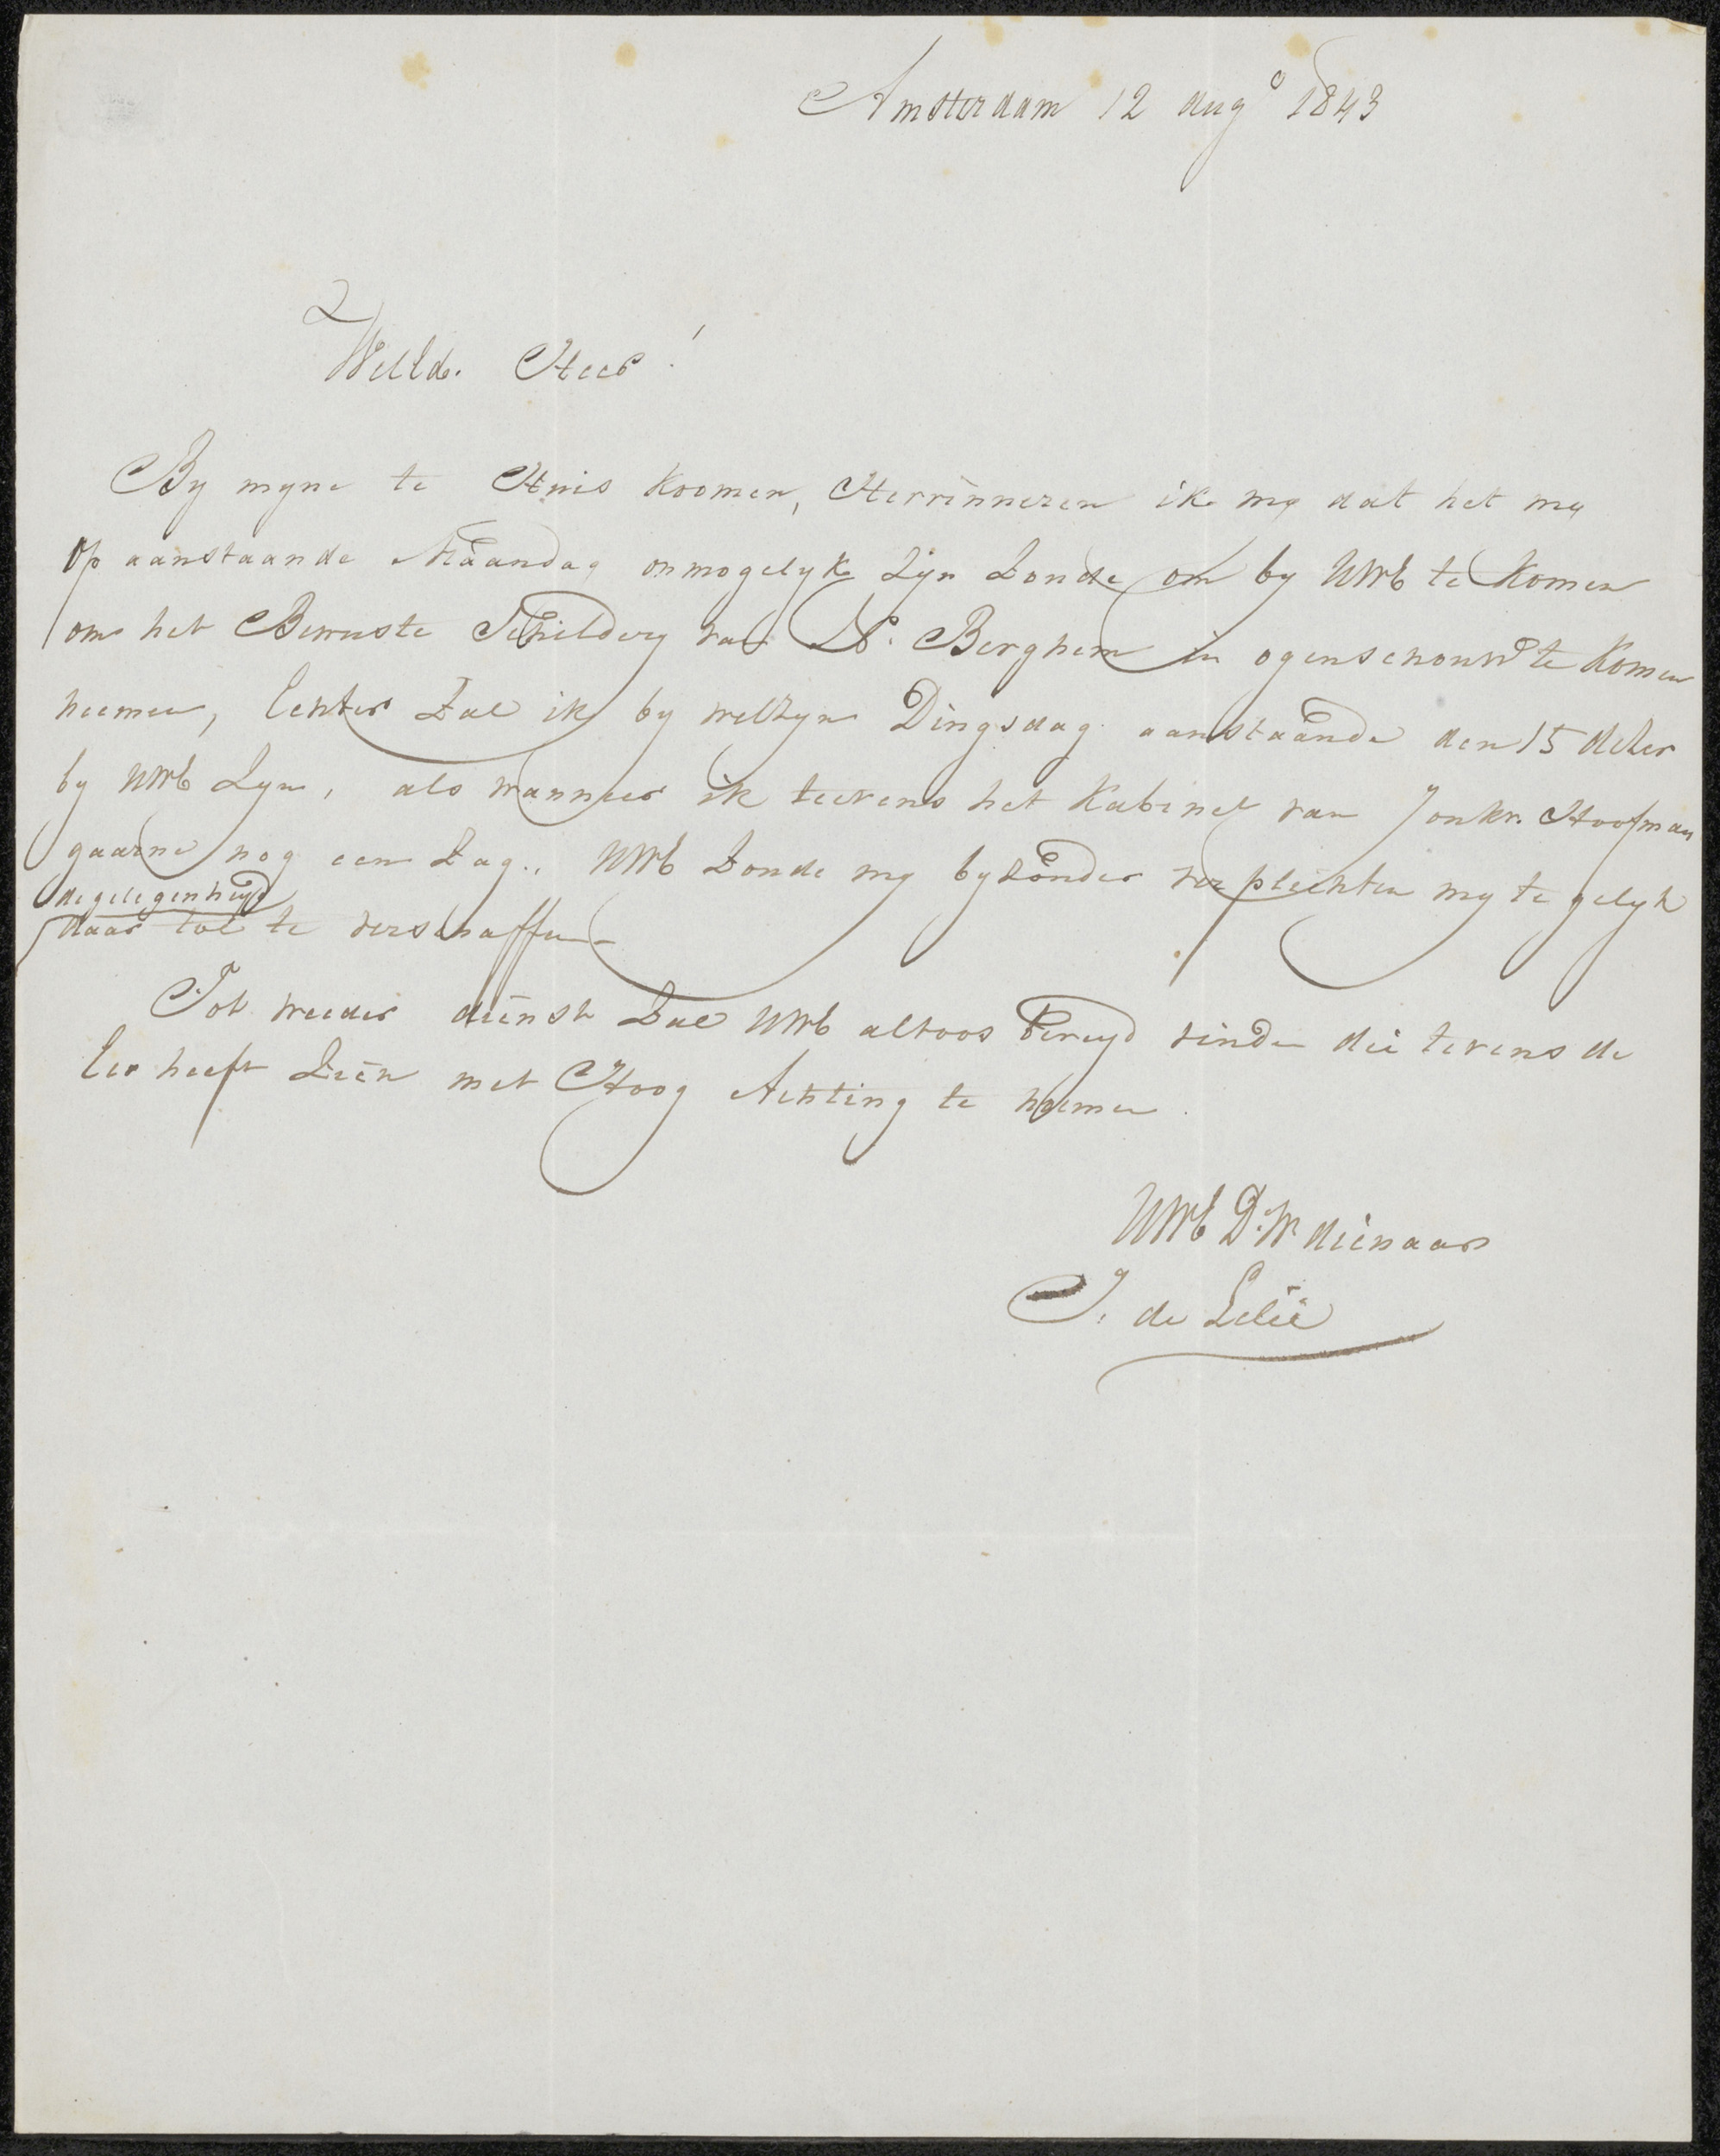 Amsterdam 12 augo 1843
WelEd. Heer!
By myne te Huis koomen, Herrinneren ik my dat het my
op aanstaande Maandag onmogelyk Zyn Zoude om by UWE te komen
om het Bewuste Schildery van N. Berghem in ogenschouw te komen
neemen, Echter Zal ik by welZyn Dingsdag aanstaande den 15 deler
by UWE Zyn, als wanneer ik teevens het Kabinet van Jonkr. Hoofman
gaarne nog een Zag., UWE Zoude my byzonder verplichten my te gelyk
de gelegenheyd
daar tot te verschaffen
Tot weeder dienst Zal UWE altoos bereyd vinden die tevens de
Eer heeft Zien met Hoog Achting te noemen.
UWE D.W. dienaar
J. de Lelie